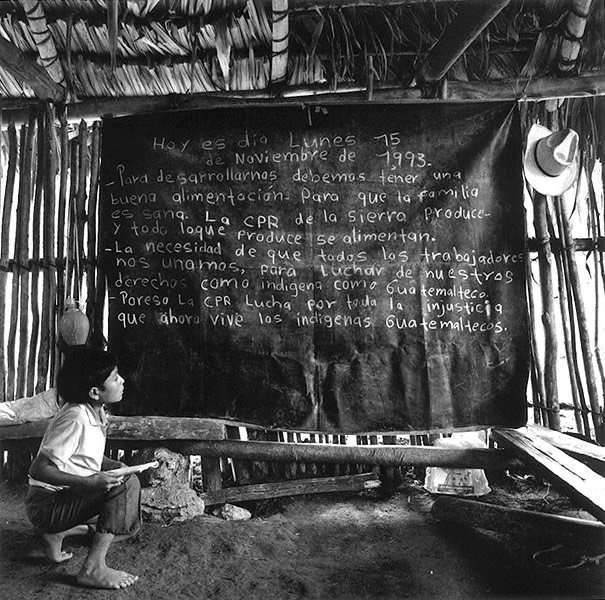 Hoy es dia Lunes 15
de Noviembre de 1993.
- Para desarrollarnos debemos tener una
buena alimentación. Para que la familia
es sana. La CPR de la sierra Produce-
y todo loque Produce se alimentan.
- La necesidad de que todos los trabajadores
nos unamos, para Luchar de nuestros
derechos como indigena como Guatemalteco.
- Poreso La CPR Lucha por toda la injusticia
que ahora vive los indigenas Guatemaltecos.